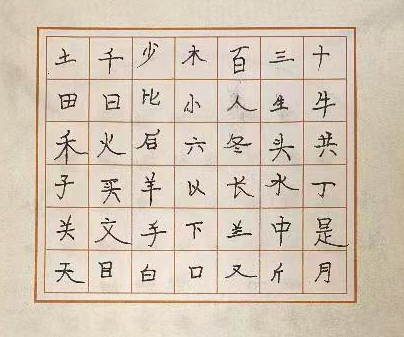 土千少木百三十
田日比小人生牛
禾火后六冬头共
子买羊以长水丁
关文手下兰中是
天目白口又斤月